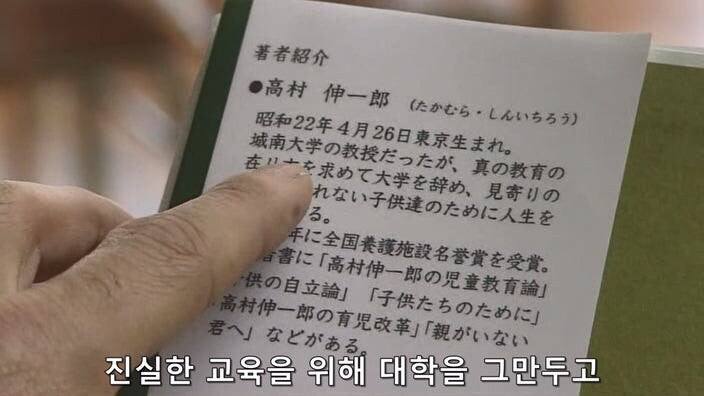 著者紹介
●高村 伸一郎 (たかむら・しんいちろう)
昭和22年4月26日東京生まれ。
城南大学の教授だったが、真の教育の
在り方を求めて大学を辞め、見寄りの
れない子供達のために人生を
る。
年に全国養護施設名誉賞を受賞。
書に「高村伸一郎の児童教育論」
子供の自立論」「子供たちのために」
高村伸一郎の育児改革」「親がいない
君へ」などがある。
진실한 교육을 위해 대학을 그만두고